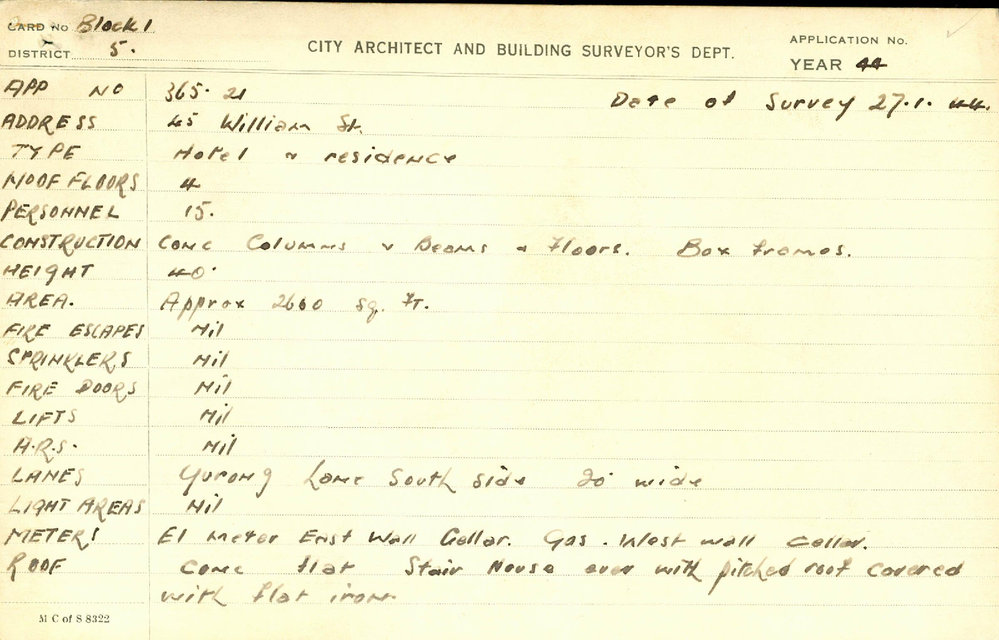 CARD No Block 1
DISTRICT 5.
CITY ARCHITECT AND BUILDING SURVEYOR'S DEPT.
APPLICATION No.
YEAR 44
APP NO 365. 21 Date of Survey 27.1.44.
ADDRESS 45 William St.
TYPE Hotel & residence
NO OF FLOORS 4
PERSONNEL 15.
CONSTRUCTION Conc Columns & Beams & Floors. Box frames.
HEIGHT 40'
AREA. Approx 2600 sq. Ft.
FIRE ESCAPES Nil
SPRINKLERS Nil
FIRE DOORS Nil
LIFTS Nil
A.R.S. Nil
LANES Yurong Lane South side 20' wide
LIGHT AREAS Nil
METERS El meter East Wall Cellar. Gas. West wall cellar.
ROOF Conc flat Stair House over with pitched roof covered
with flat iron
M C of S 8322